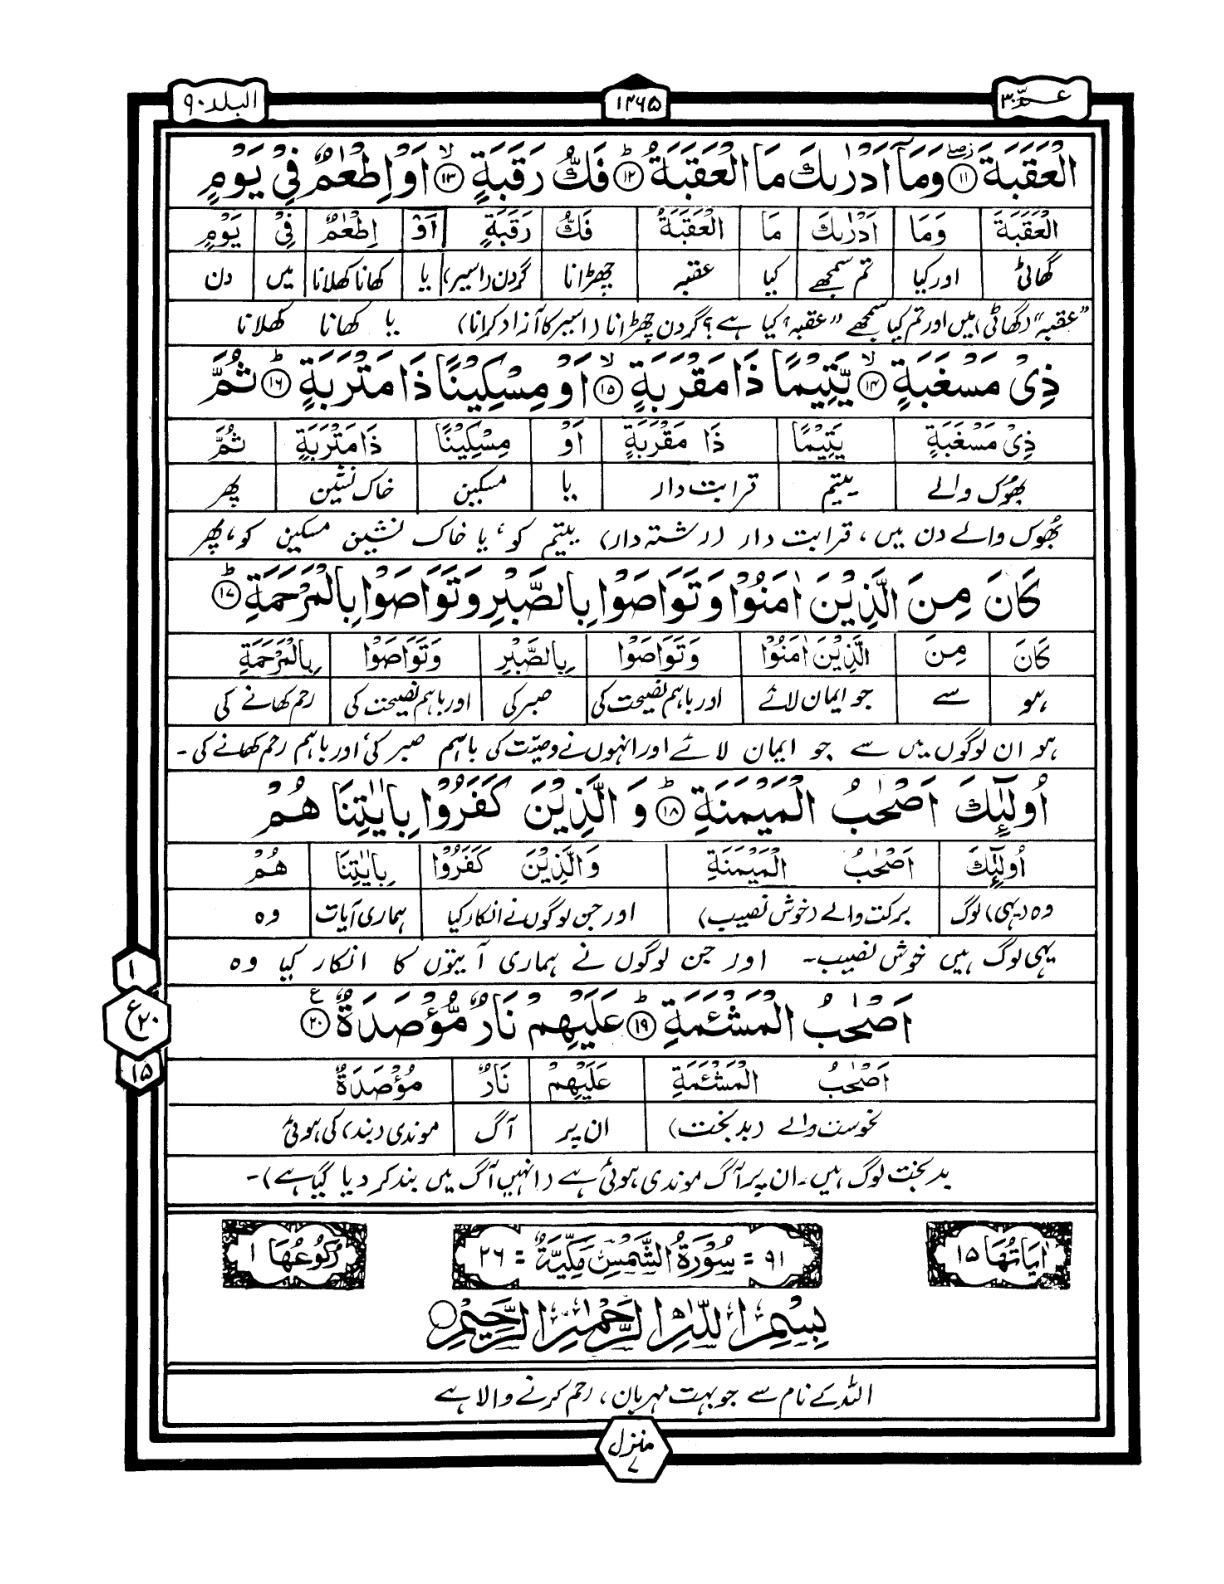 عــمّ ۳۰
۱۲۶۵
البلد ۹۰
الْعَقَبَةَ ۝۱۱ وَمَاۤ اَدْرٰىكَ مَا الْعَقَبَةُ ۝۱۲ فَكُّ رَقَبَةٍ ۝۱۳ اَوْ اِطْعٰمٌ فِيْ يَوْمٍ
الْعَقَبَةَ وَمَا اَدْرٰىكَ مَا الْعَقَبَةُ فَكُّ رَقَبَةٍ اَوْ اِطْعٰمٌ فِيْ يَوْمٍ
گھاٹی اور کیا تم سمجھے کیا عقبہ چھڑانا گردن (اسیر) یا کھانا کھلانا میں دن
"عقبہ" (گھاٹی) میں اور تم کیا سمجھے "عقبہ" کیا ہے؟ گردن چھڑانا (اسیر کا آزاد کرانا) یا کھانا کھلانا
ذِيْ مَسْغَبَةٍ ۝۱۴ يَّتِيْمًا ذَا مَقْرَبَةٍ ۝۱۵ اَوْ مِسْكِيْنًا ذَا مَتْرَبَةٍ ۝۱۶ ثُمَّ
ذِيْ مَسْغَبَةٍ يَتِيْمًا ذَا مَقْرَبَةٍ اَوْ مِسْكِيْنًا ذَا مَتْرَبَةٍ ثُمَّ
بھوک والے یتیم قرابت دار یا مسکین خاک نشین پھر
بھوک والے دن میں، قرابت دار (رشتہ دار) یتیم کو، یا خاک نشین مسکین کو، پھر
كَانَ مِنَ الَّذِيْنَ اٰمَنُوْا وَتَوَاصَوْا بِالصَّبْرِ وَتَوَاصَوْا بِالْمَرْحَمَةِ ۝۱۷
كَانَ مِنَ الَّذِيْنَ اٰمَنُوْا وَتَوَاصَوْا بِالصَّبْرِ وَتَوَاصَوْا بِالْمَرْحَمَةِ
ہو سے جو ایمان لائے اور باہم نصیحت کی صبر کی اور باہم نصیحت کی رحم کھانے کی
ہو ان لوگوں میں سے جو ایمان لائے اور انہوں نے وصیّت کی باہم صبر کی، اور باہم رحم کھانے کی۔
اُولٰٓئِكَ اَصْحٰبُ الْمَيْمَنَةِ ۝۱۸ وَ الَّذِيْنَ كَفَرُوْا بِاٰيٰتِنَا هُمْ
اُولٰٓئِكَ اَصْحٰبُ الْمَيْمَنَةِ وَالَّذِيْنَ كَفَرُوْا بِاٰيٰتِنَا هُمْ
وہ (یہی) لوگ برکت والے (خوش نصیب) اور جن لوگوں نے انکار کیا ہماری آیات وہ
یہی لوگ ہیں خوش نصیب۔ اور جن لوگوں نے ہماری آیتوں کا انکار کیا وہ
۱
ع ۲۰
۱۵
اَصْحٰبُ الْمَشْئَمَةِ ۝۱۹ عَلَيْهِمْ نَارٌ مُّؤْصَدَةٌ ۝۲۰
اَصْحٰبُ الْمَشْئَمَةِ عَلَيْهِمْ نَارٌ مُؤْصَدَةٌ
نحوست والے (بدبخت) ان پر آگ موندی (بند) کی ہوئی
بدبخت لوگ ہیں۔ ان پر آگ موندی ہوئی ہے (انہیں آگ میں بند کر دیا گیا ہے)۔
اٰيَاتُهَا ۱۵
۹۱ = سُوْرَةُ الشَّمْسِ مَكِّيَّةٌ = ۲۶
رُكُوْعُهَا ۱
بِسْمِ اللّٰهِ الرَّحْمٰنِ الرَّحِيْمِ
اللہ کے نام سے جو بہت مہربان، رحم کرنے والا ہے
منزل ۷